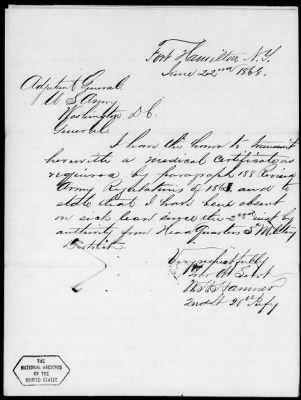 Fort Hamilton, N.Y.
June 22nd 1865.
Adjutant General
U S Army
Washington D.C.
General.
I have the honor to transmit
herewith a medical Certificate as
required by paragraph 188 Revised
Army Regulations of 1861 and to
state that I have been absent
on sick leave since the 2nd inst by
authority from Head Quarters 5th Mil
District.
Very respectfully
Your Ob Servt
Hamner
2nd Lt 20th Infy
THE
NATIONAL ARCHIVES
OF THE
UNITED STATES